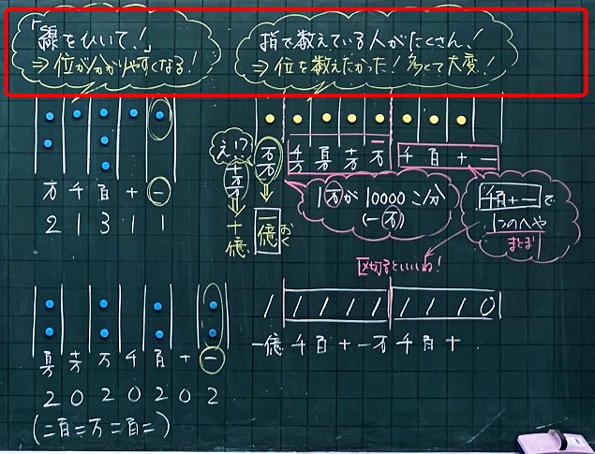 「線をひいて!」
⇒位が分かりやすくなる!
指で数えている人がたくさん!
⇒位を数えたかった!多くて大変!
え!?
十万万
万万
千万 百万 十万 万
千 百 十 一
万 千 百 十 一
2 1 3 1 1
十億
一億
おく
1万が10000こ分
(一万)
千百十一で
1つのへや
まとまり
区切るといいね!
1 1 1 1 1 1 1 1 0
一億 千 百 十 一万 千 百 十
百万 十万 万 千 百 十 一
2 0 2 0 2 0 2
(二百二万二百二)